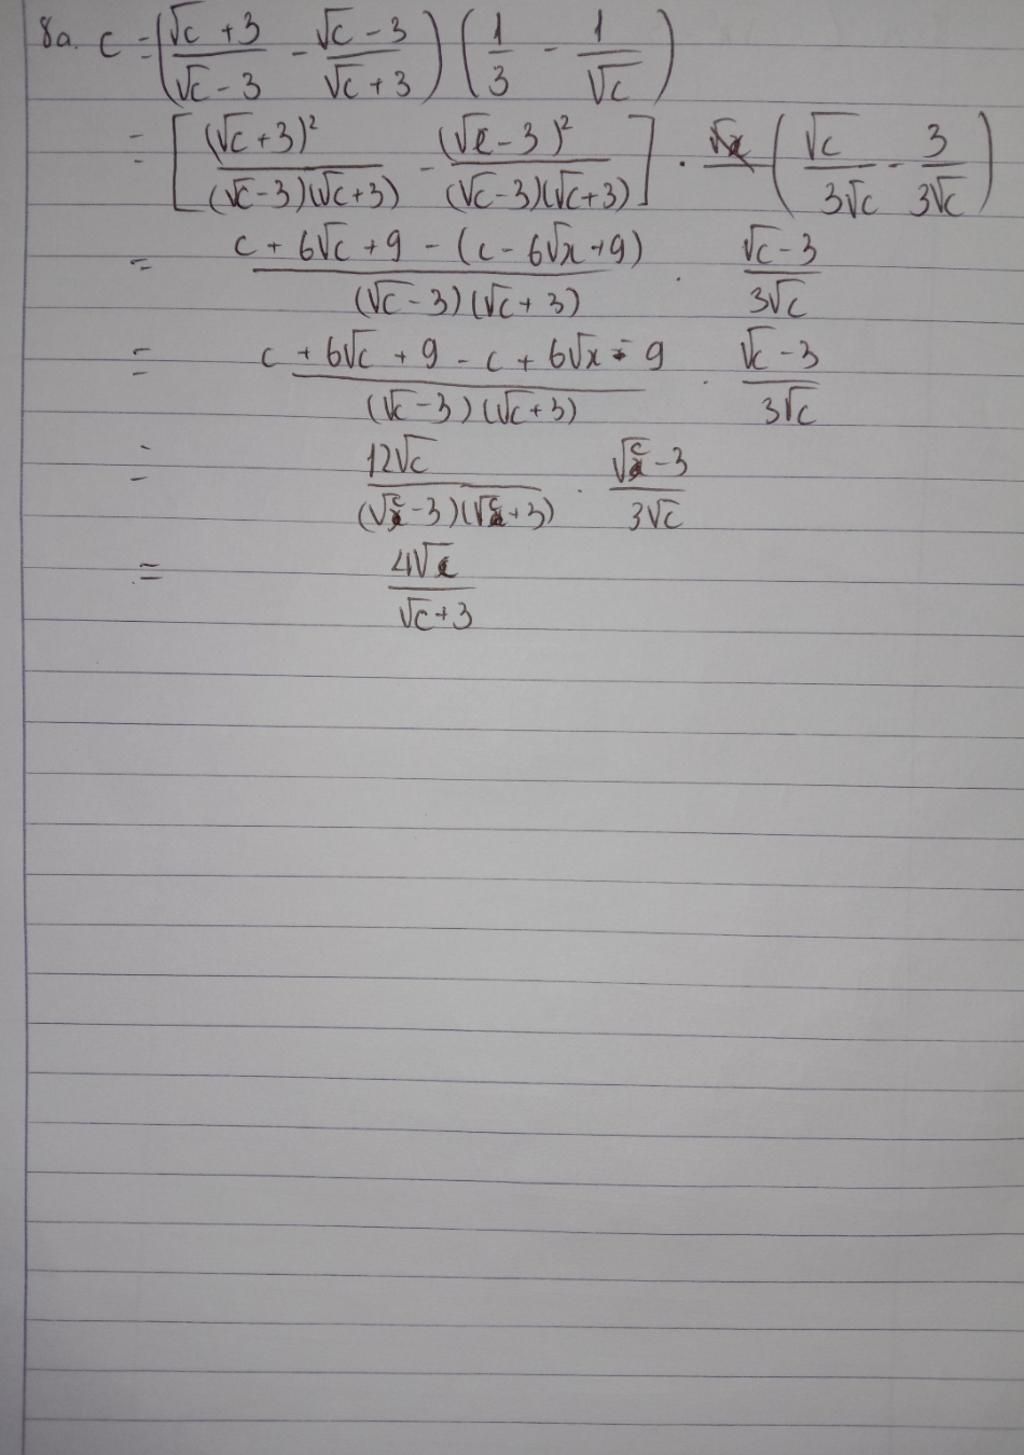 8a. C = (√c + 3 / √c - 3 - √c - 3 / √c + 3) (1 / 3 - 1 / √c)
= [(√c + 3)² / (√c - 3)(√c + 3) - (√c - 3)² / (√c - 3)(√c + 3)] . (√c / 3√c - 3 / 3√c)
= c + 6√c + 9 - (c - 6√x + 9) / (√c - 3)(√c + 3) . √c - 3 / 3√c
= c + 6√c + 9 - c + 6√x - 9 / (√c - 3)(√c + 3) . √c - 3 / 3√c
= 12√c / (√c - 3)(√c + 3) . √c - 3 / 3√c
= 4√c / √c + 3